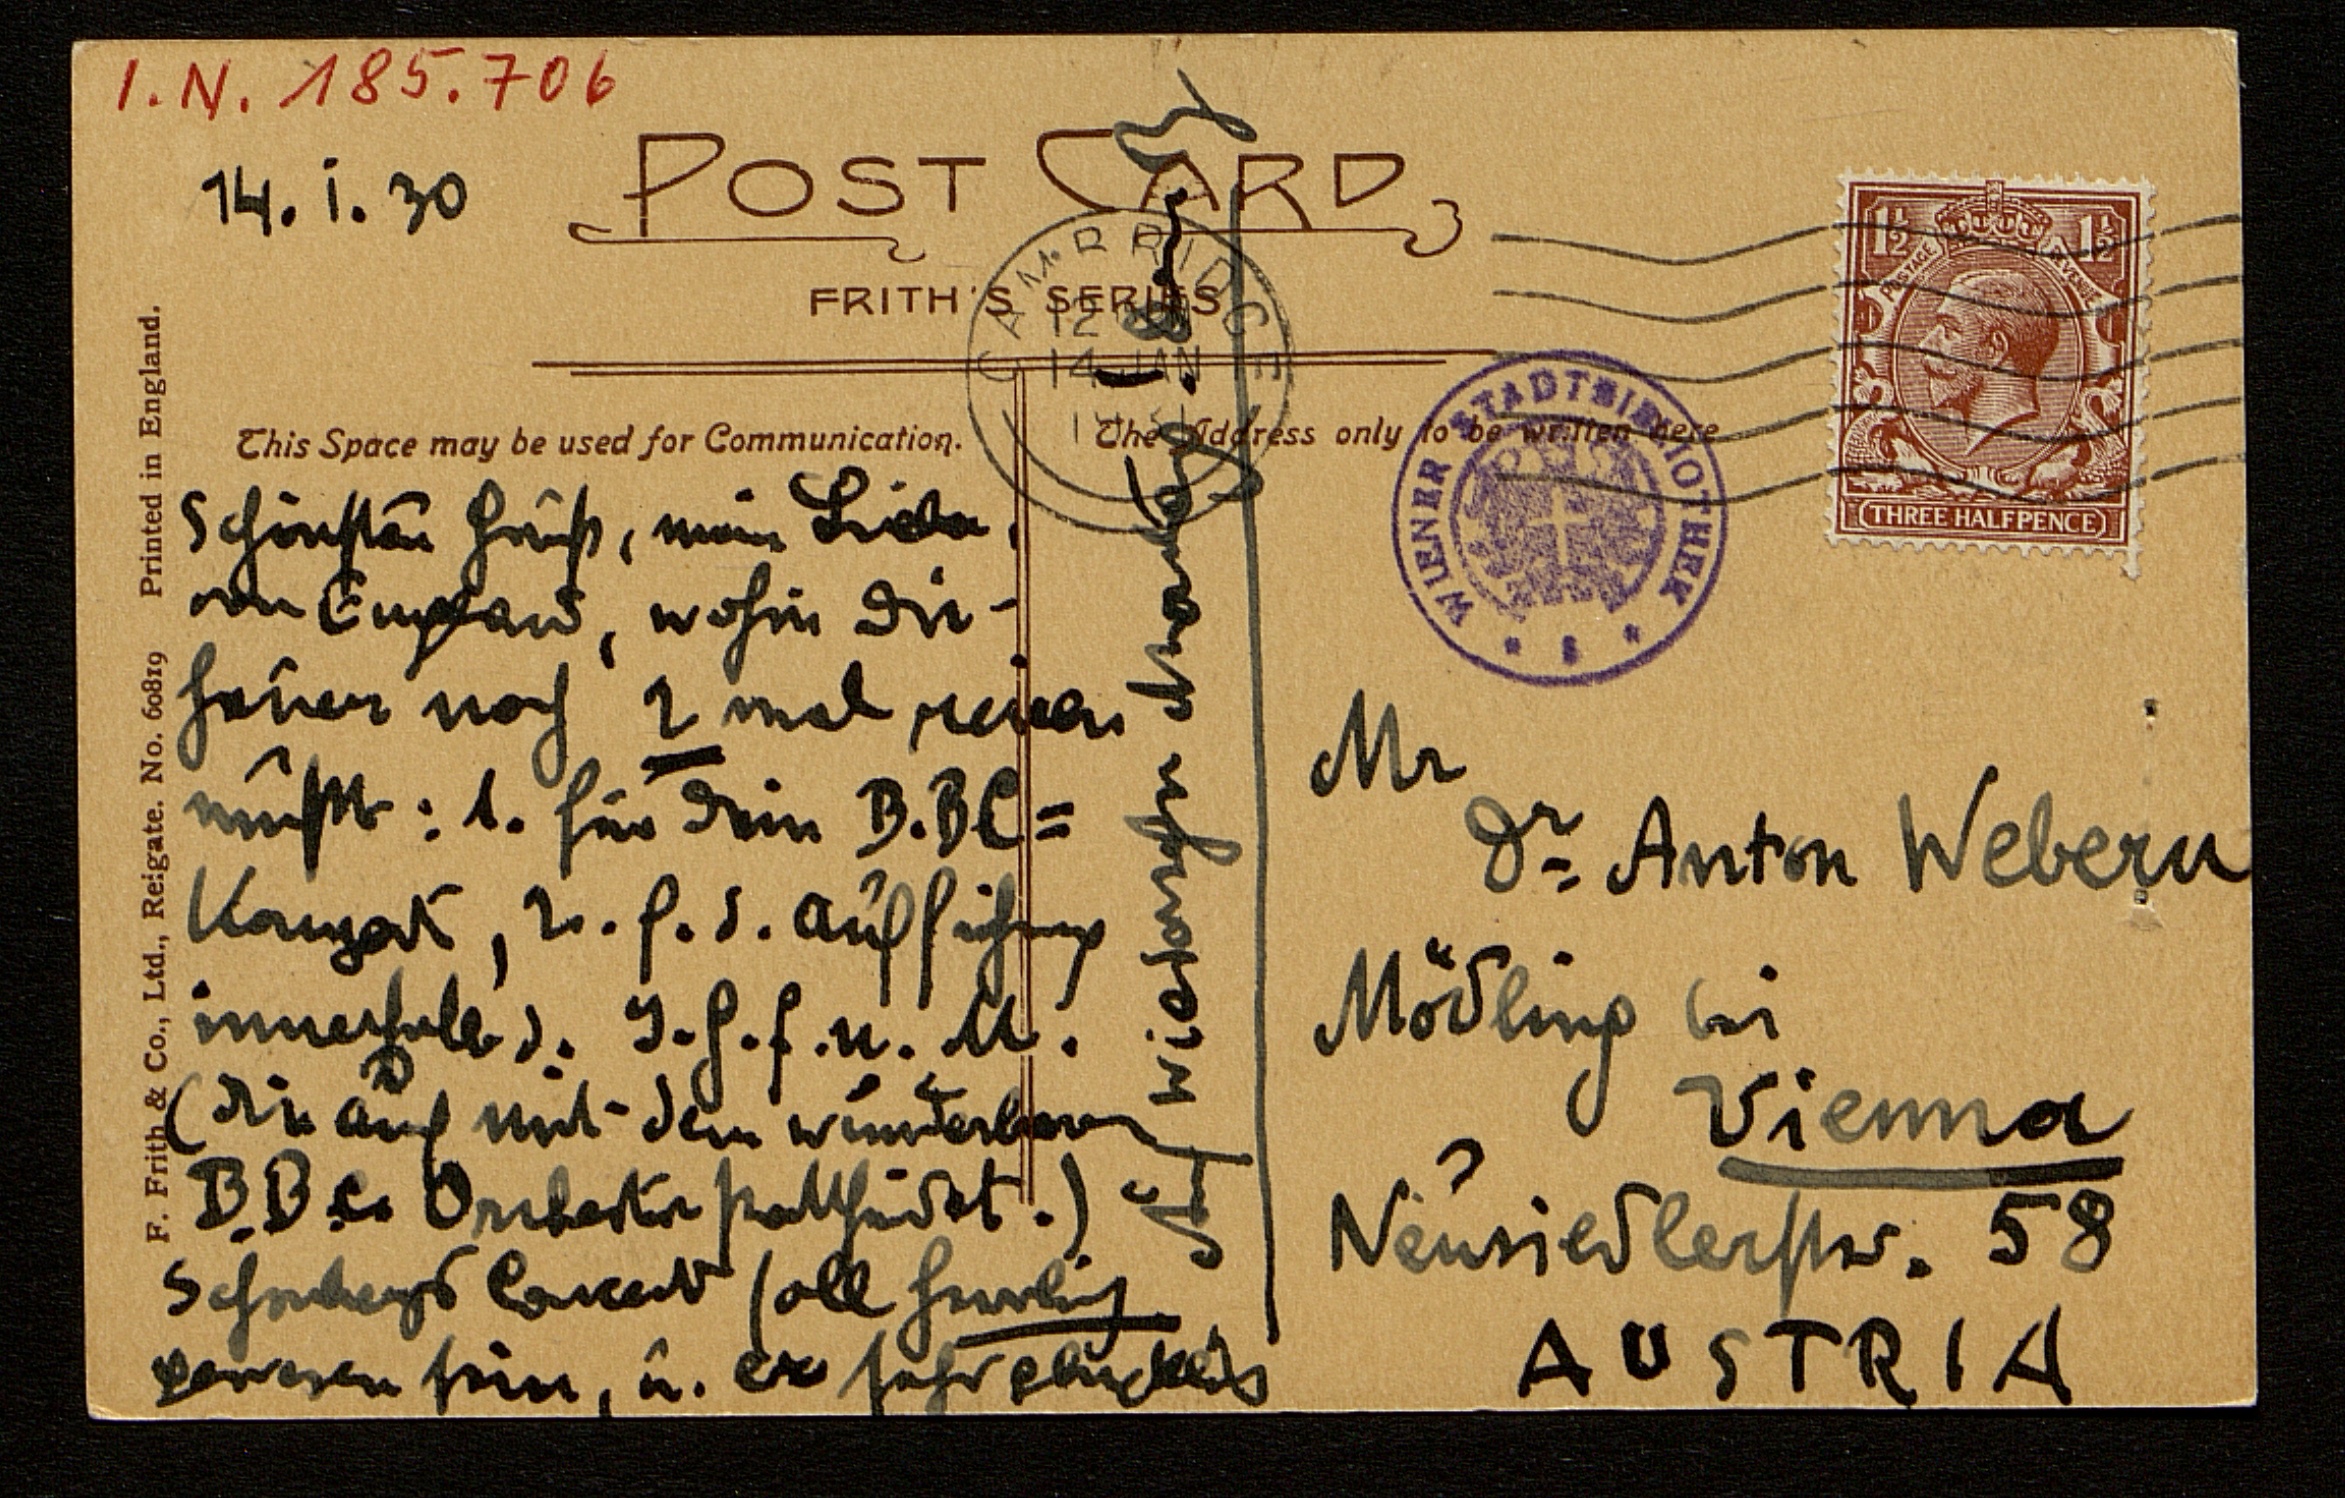 I.N. 185.706
14. I. 30
POST CARD
FRITH'S SERIES
CAMBRIDGE
12
14 JAN
This Space may be used for Communication.
The Address only to be written here
WIENER STADTBIBLIOTHEK
1½ 1½
POSTAGE REVENUE
THREE HALFPENCE
F. Frith & Co., Ltd., Reigate. No. 60819 Printed in England.
Schönsten Gruß, mein Lieber,
von England, wohin Du
heuer noch 2 mal reisen
mußt: 1. für Dein B.B.C=
Konzert, 2. f. d. Aufführung
innerhalb d. I.G.f.n.M.
(die auch mit dem wunderbaren
B.B.C. Orchester stattfindet.)
Schönbergs Concert soll herrlich
gewesen sein, u. er sehr glücklich
Auf Wiedersehn
Mr
Dr. Anton Webern
Mödling bei
Vienna
Neusiedlerstr. 58
AUSTRIA